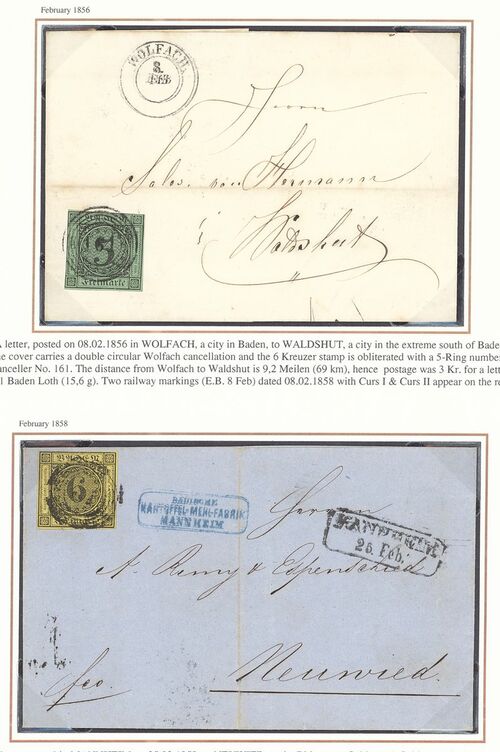 February 1856
WOLFACH
8.
FEB
Herrn
Salos. von Hermann
Waldshut
3
Freimarke
A letter, posted on 08.02.1856 in WOLFACH, a city in Baden, to WALDSHUT, a city in the extreme south of Bade
he cover carries a double circular Wolfach cancellation and the 6 Kreuzer stamp is obliterated with a 5-Ring number
anceller No. 161. The distance from Wolfach to Waldshut is 9,2 Meilen (69 km), hence postage was 3 Kr. for a lett
1 Baden Loth (15,6 g). Two railway markings (E.B. 8 Feb) dated 08.02.1858 with Curs I & Curs II appear on the re
February 1858
BADEN
6
BADISCHE
KARTOFFEL-MEHL-FABRIK
MANNHEIM
Herren
MANNHEIM
26. Feb.
A. Remy & Espenschied
Neuwied.
fco.